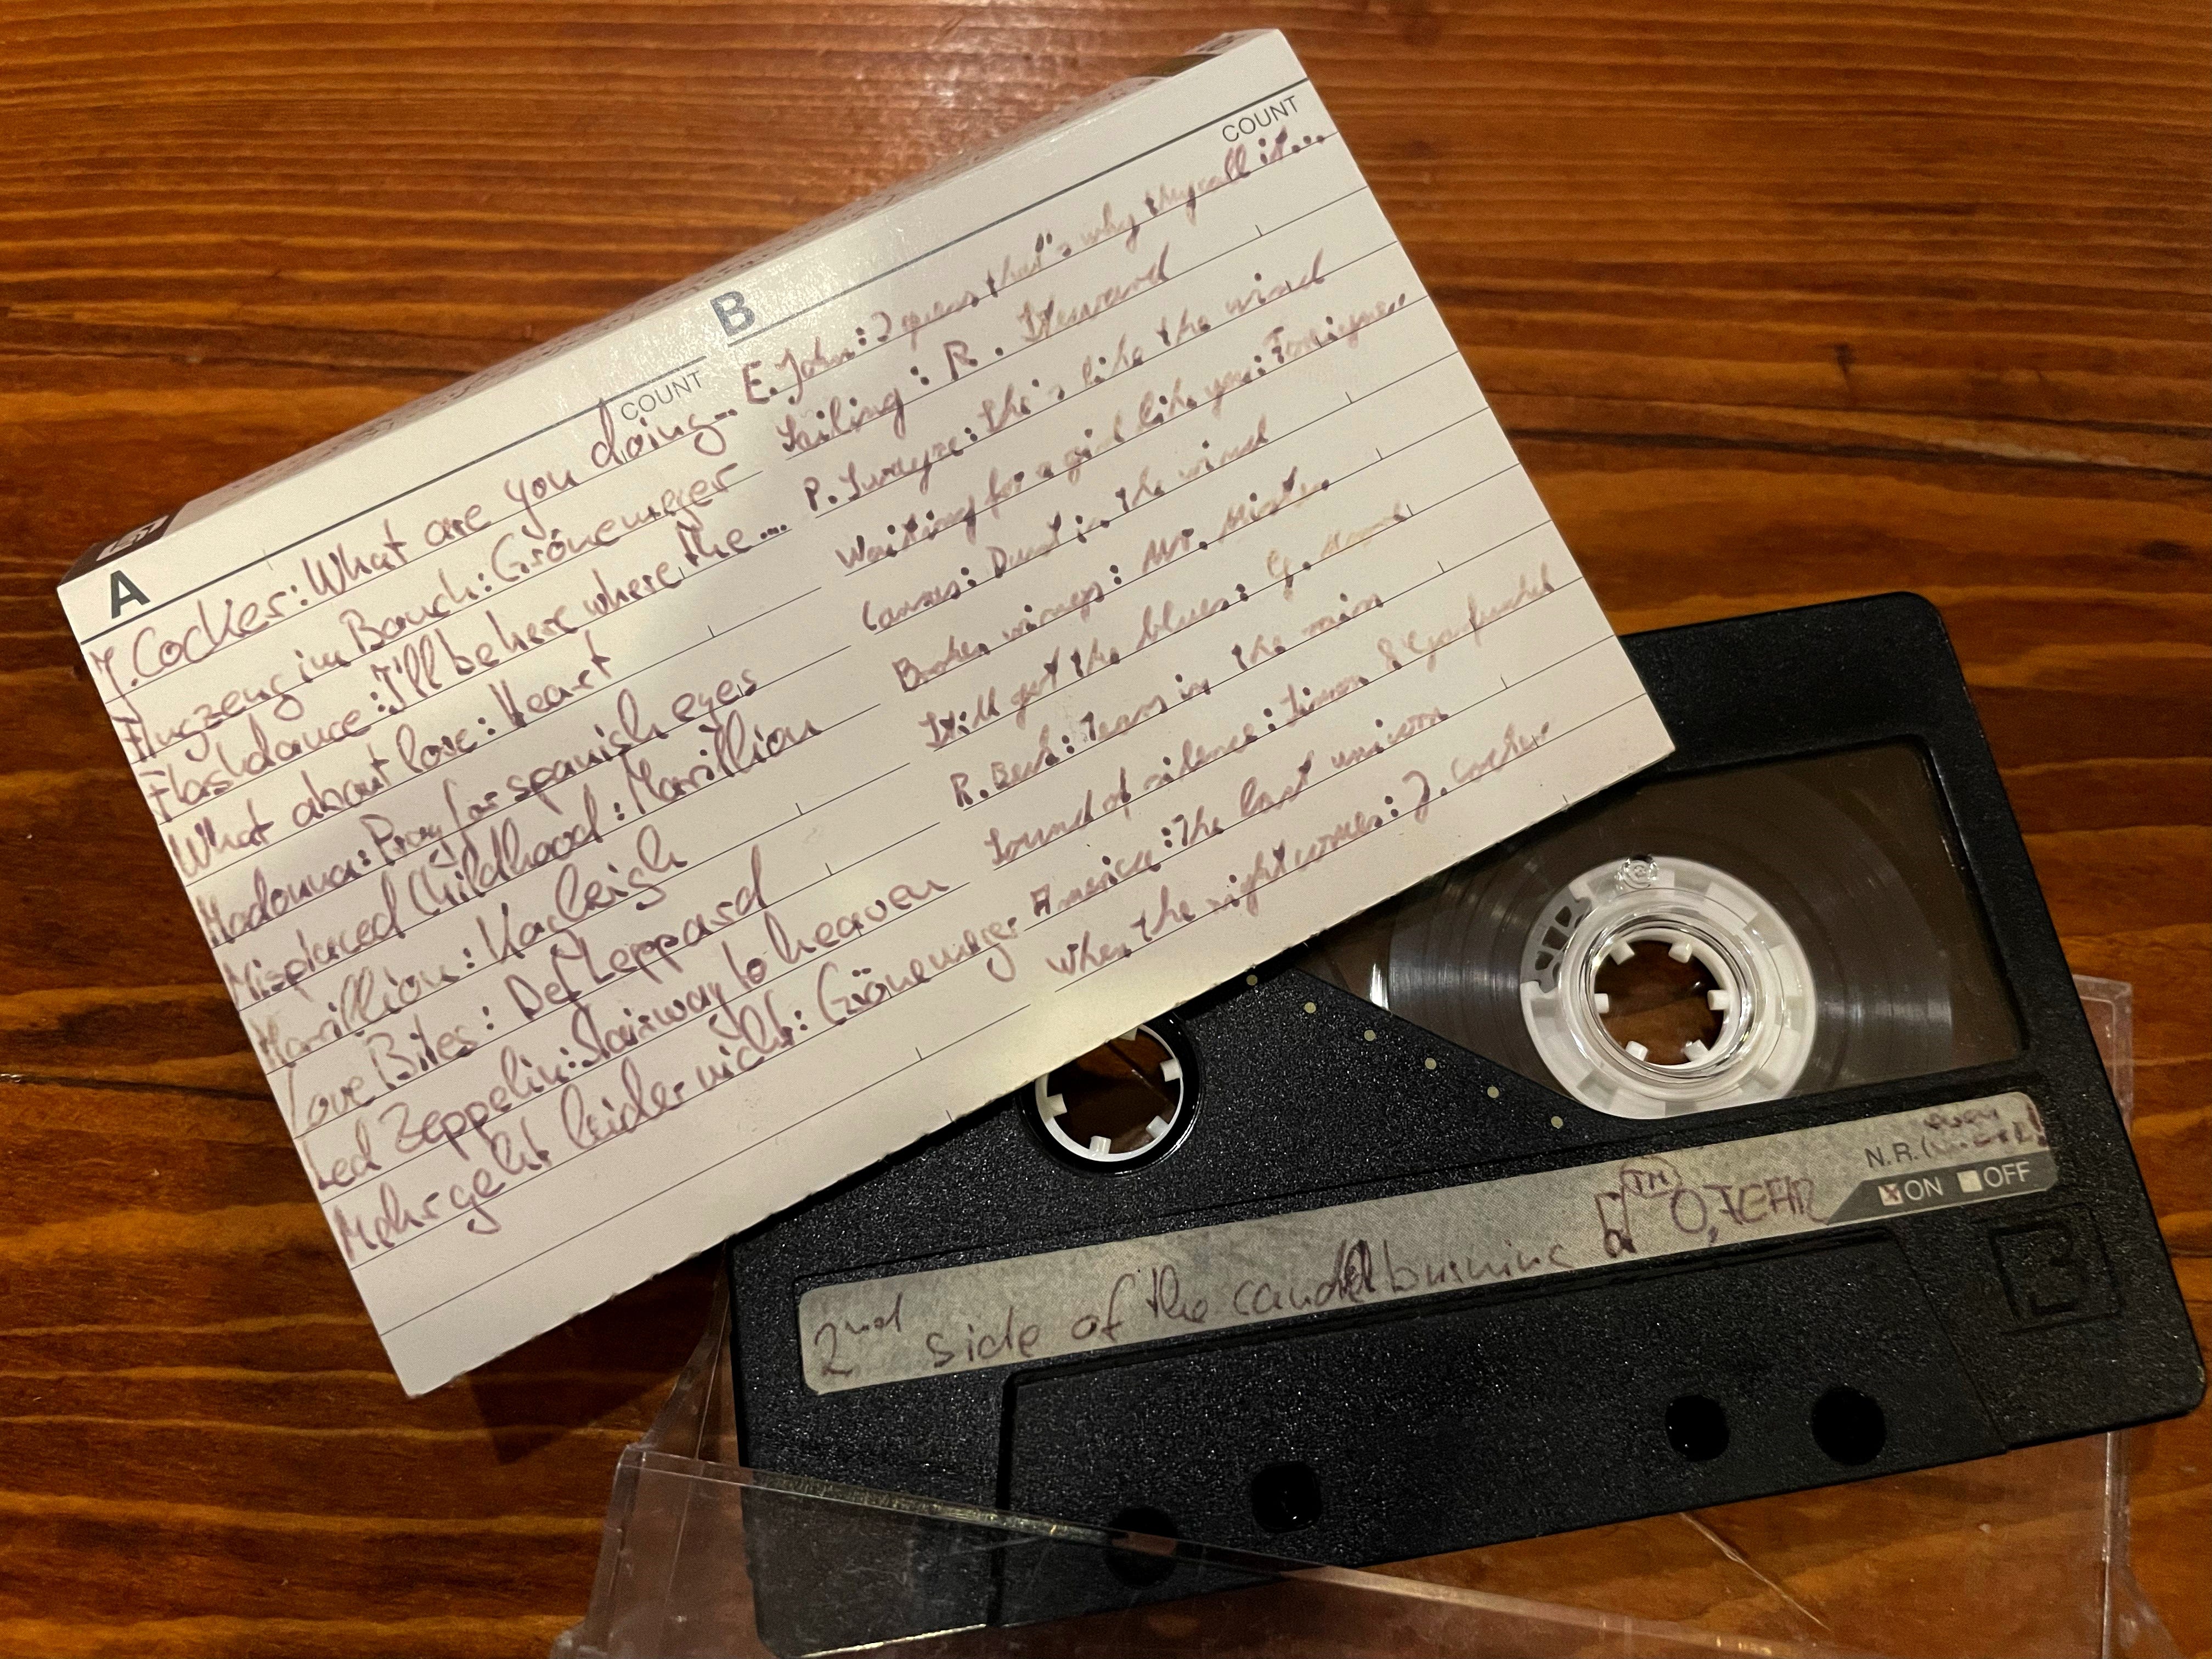 A
COUNT
J. Cocker: What are you doing...
Flugzeug im Bauch: Grönemeyer
Flashdance: I'll be here where the...
What about love: Heart
Madonna: Pray for spanish eyes
Misplaced Childhood: Marillion
Marillion: Kayleigh
Love Bites: Def Leppard
Led Zeppelin: Stairway to heaven
Mehr geht leider nicht: Grönemeyer
B
COUNT
E. John: I guess that's why they call it...
Sailing: R. Steward
P. Swayze: She's like the wind
Waiting for a girl like you: Foreigner
Cansas: Dust in the wind
Broken wings: Mr. Mister
Still got the blues: G. Moore
R. Beck: Tears in the rain
Sound of silence: Simon & Garfunkel
America: The last unicorn
When the night comes: J. Cocker
2nd side of the candel burning
N.R.
ON OFF